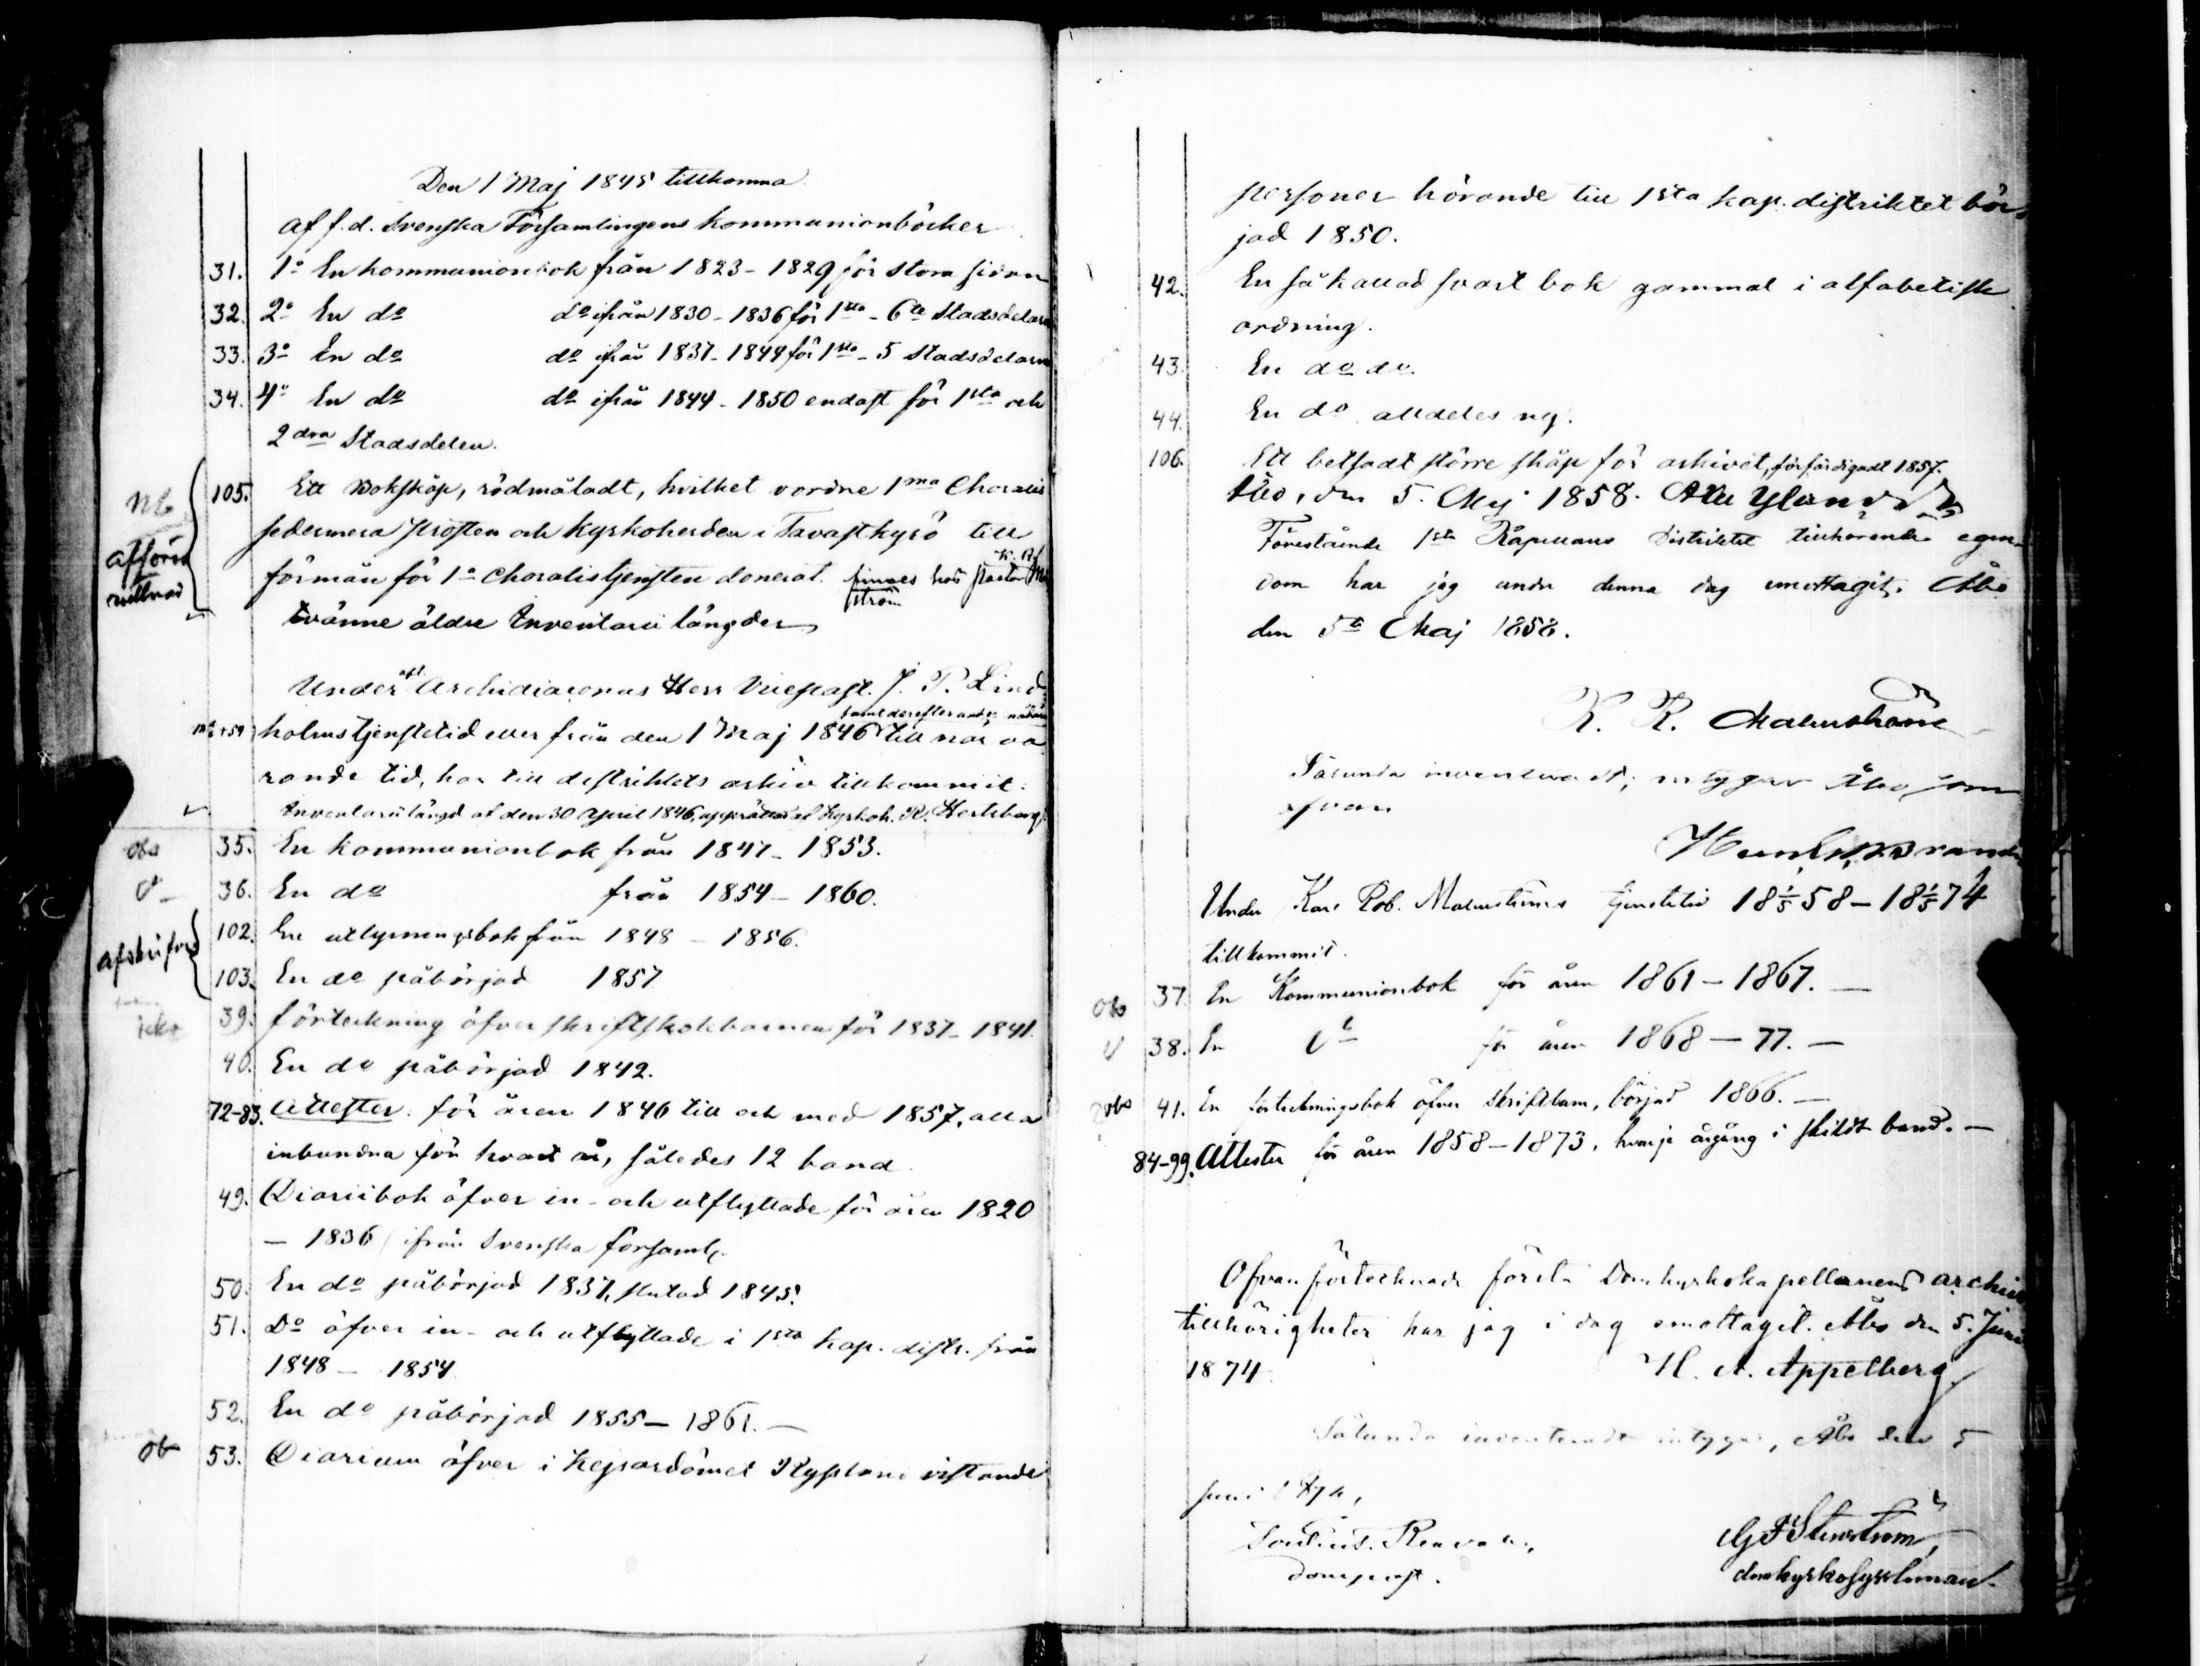 Den 1 Maj 1845 tillkomna
af f.d. Svenska Församlingens kommunionböcker
31. 1o En kommunionbok från 1823-1829 för stora sidan
32. 2o En do do ifrån 1830-1836 för 1sta-6te Stadsdelarn
33. 3o En do do ifrån 1837-1844 för 1sta-5 Stadsdelarn
34. 4o En do do ifrån 1844-1850 endast för 1sta och
2dra Stadsdelen.
105. Ett Bokskåp, rödmåladt, hvilket vordne 1ma Choralis
sedermera Prosten och Kyrkoherden i Tavastkyrö till
förmån för 1a Choralistjensten donerat. finnes hos Pastor
ström
tvänne äldre Inventarii längder
Nb
afförd
Under Archidiaconus Herr Vicepast. J. P. Lind
samt derefter
holms tjenstetid eller från den 1 Maj 1846 till när va
rande tid, har till distriktets arkiv tillkommit:
Inventarii längd af den 30 April 1846, upprättad af Kyrkoh. R. Hertzberg.
obs 35. En kommunionbok från 1847-1853.
36. En do från 1854-1860.
102. En utlysningsbok från 1848-1856.
afskrifvas
103. En do påbörjad 1857
icke 39. förteckning öfver skriftskolebarnen för 1837-1841.
40. En do påbörjad 1842.
72-83. Attester för åren 1846 till och med 1857, alla
inbundna för hvart år, således 12 band.
49. Diariibok öfver in- och utflyttade för åren 1820
- 1836 ifrån Svenska församl.
50. En do påbörjad 1837, slutad 1845.
51. Do öfver in- och utflyttade i 1sta kap. distr. från
1848 - 1854
52. En do påbörjad 1855-1861.
ob 53. Diarium öfver i Kejsardömet Ryssland vistande
personer hörande till 1sta kap. distriktet bör
jad 1850.
42. En så kallad svart bok gammal i alfabetisk
ordning.
43. En do do.
44. En do alldeles ny.
106. Ett betsadt större skåp för arkivet, förfärdigadt 1857.
Åbo, den 5. Maj 1858.
Förestående 1sta Kapellans Distriktet tillhörande egen
dom har jag under denna dag emottagit. Åbo
den 5te Maj 1858.
K. R. Malmström
Sålunda inventeradt, intygar Åbo, som
ofvan
Under Karl Rob. Malmströms tjenstetid 18 1/5 58 - 18 1/5 74
tillkommit.
obs 37. En Kommunionbok för åren 1861-1867.
38. En do för åren 1868-77.
obs 41. En förteckningsbok öfver skriftbarn, börjad 1866.
84-99. Attester för åren 1858-1873, hvarje årgång i skildt band.
Ofvanförtecknade första Domkyrkokapellanens archiv
tillhörigheter har jag i dag emottagit. Åbo den 5. Juni
1874.
H. A. Appelberg
Sålunda inventeradt intygar, Åbo den 5
Juni 1874,
domprost.
domkyrkosyssloman.